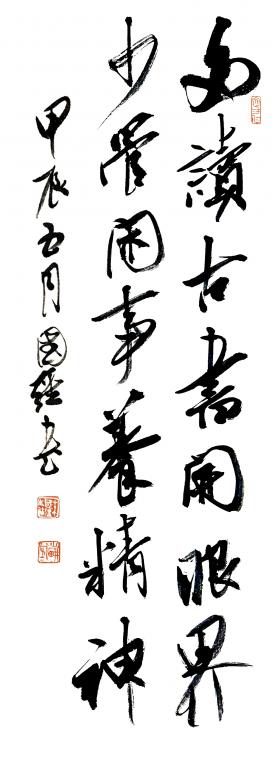 多讀古書開眼界
少管閒事養精神
甲辰五月國經書